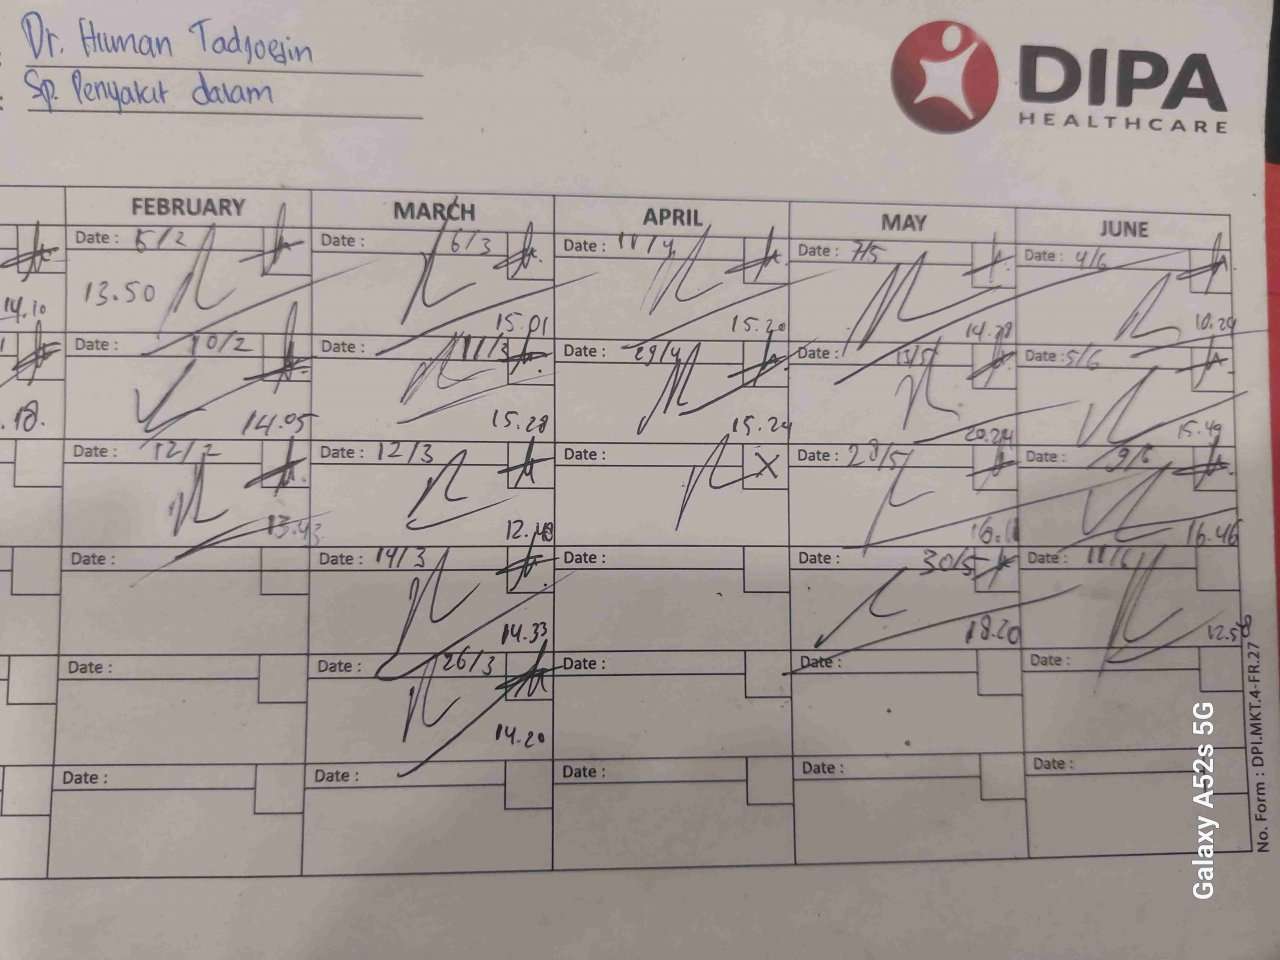 Dr. Human Tadjoedin
Sp. Penyakit dalam
DIPA
HEALTHCARE
FEBRUARY MARCH APRIL MAY JUNE
Date : 5/2 Date : 6/3 Date : 11/4 Date : 7/5 Date : 4/6
14.10 13.50 15.01 15.20 14.28 10.29
Date : 10/2 Date : 11/3 Date : 29/4 Date : 13/5 Date : 5/6
.18. 14.05 15.28 15.24 20.24 15.49
Date : 12/2 Date : 12/3 Date : X Date : 28/5 Date : 9/6
13.43 12.48 16.11 16.46
Date : Date : 14/3 Date : Date : 30/5 Date : 11/6
14.33 18.20 12.58
Date : Date : 26/3 Date : Date : Date :
14.20
Date : Date : Date : Date : Date :
No. Form : DPI.MKT.4-FR.27
Galaxy A52s 5G